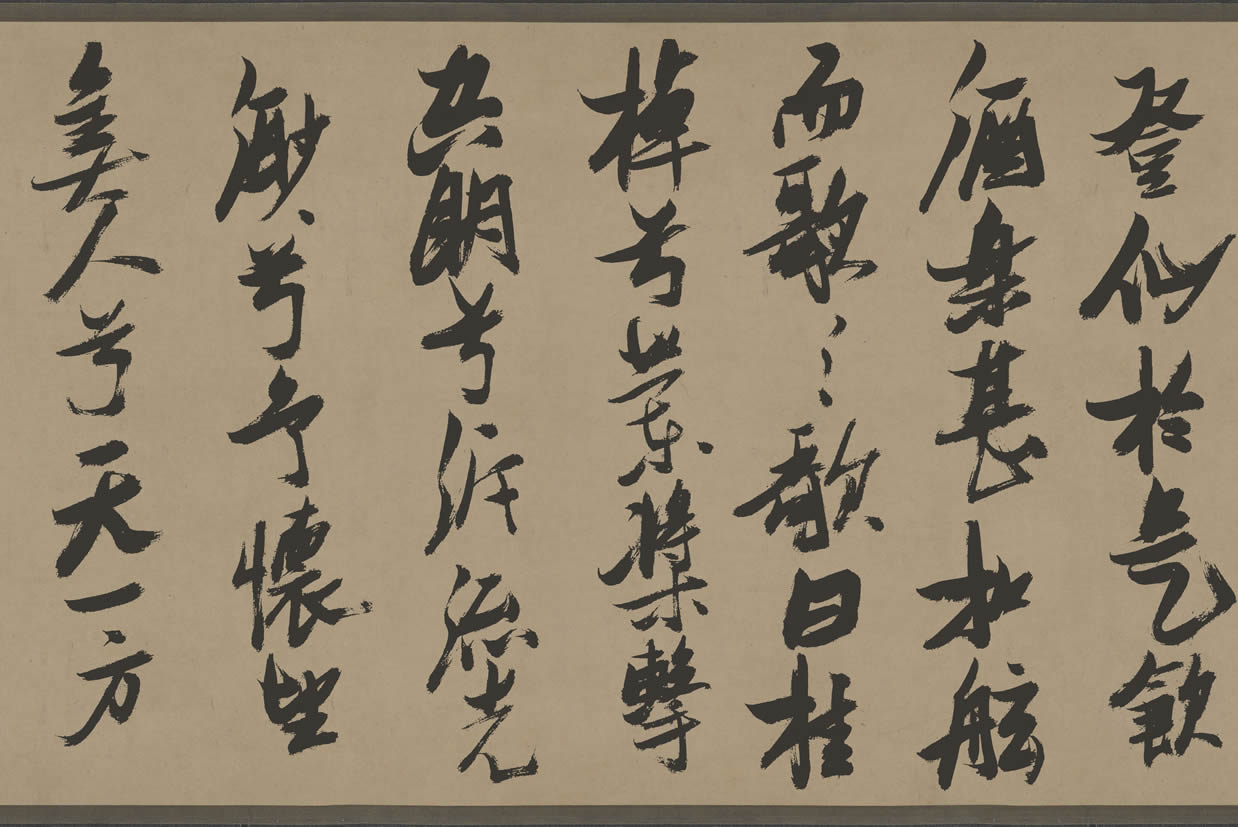 登仙於是飲
酒樂甚扣舷
而歌之歌曰桂
棹兮蘭槳擊
空明兮泝流光
渺々兮予懷望
美人兮天一方